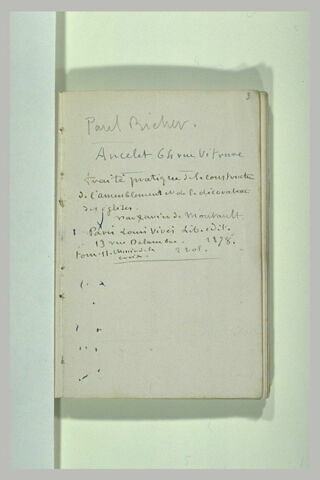 3
Paul Richer.
Ancelet 64 rue Vitruve
traité pratique de la construction
de l'ameublement et de la décoration
des églises.
par Xavier de Montault.
Paris Louis Vivès Lib. edit.
13 rue Delambre. 1878.
tom. II.